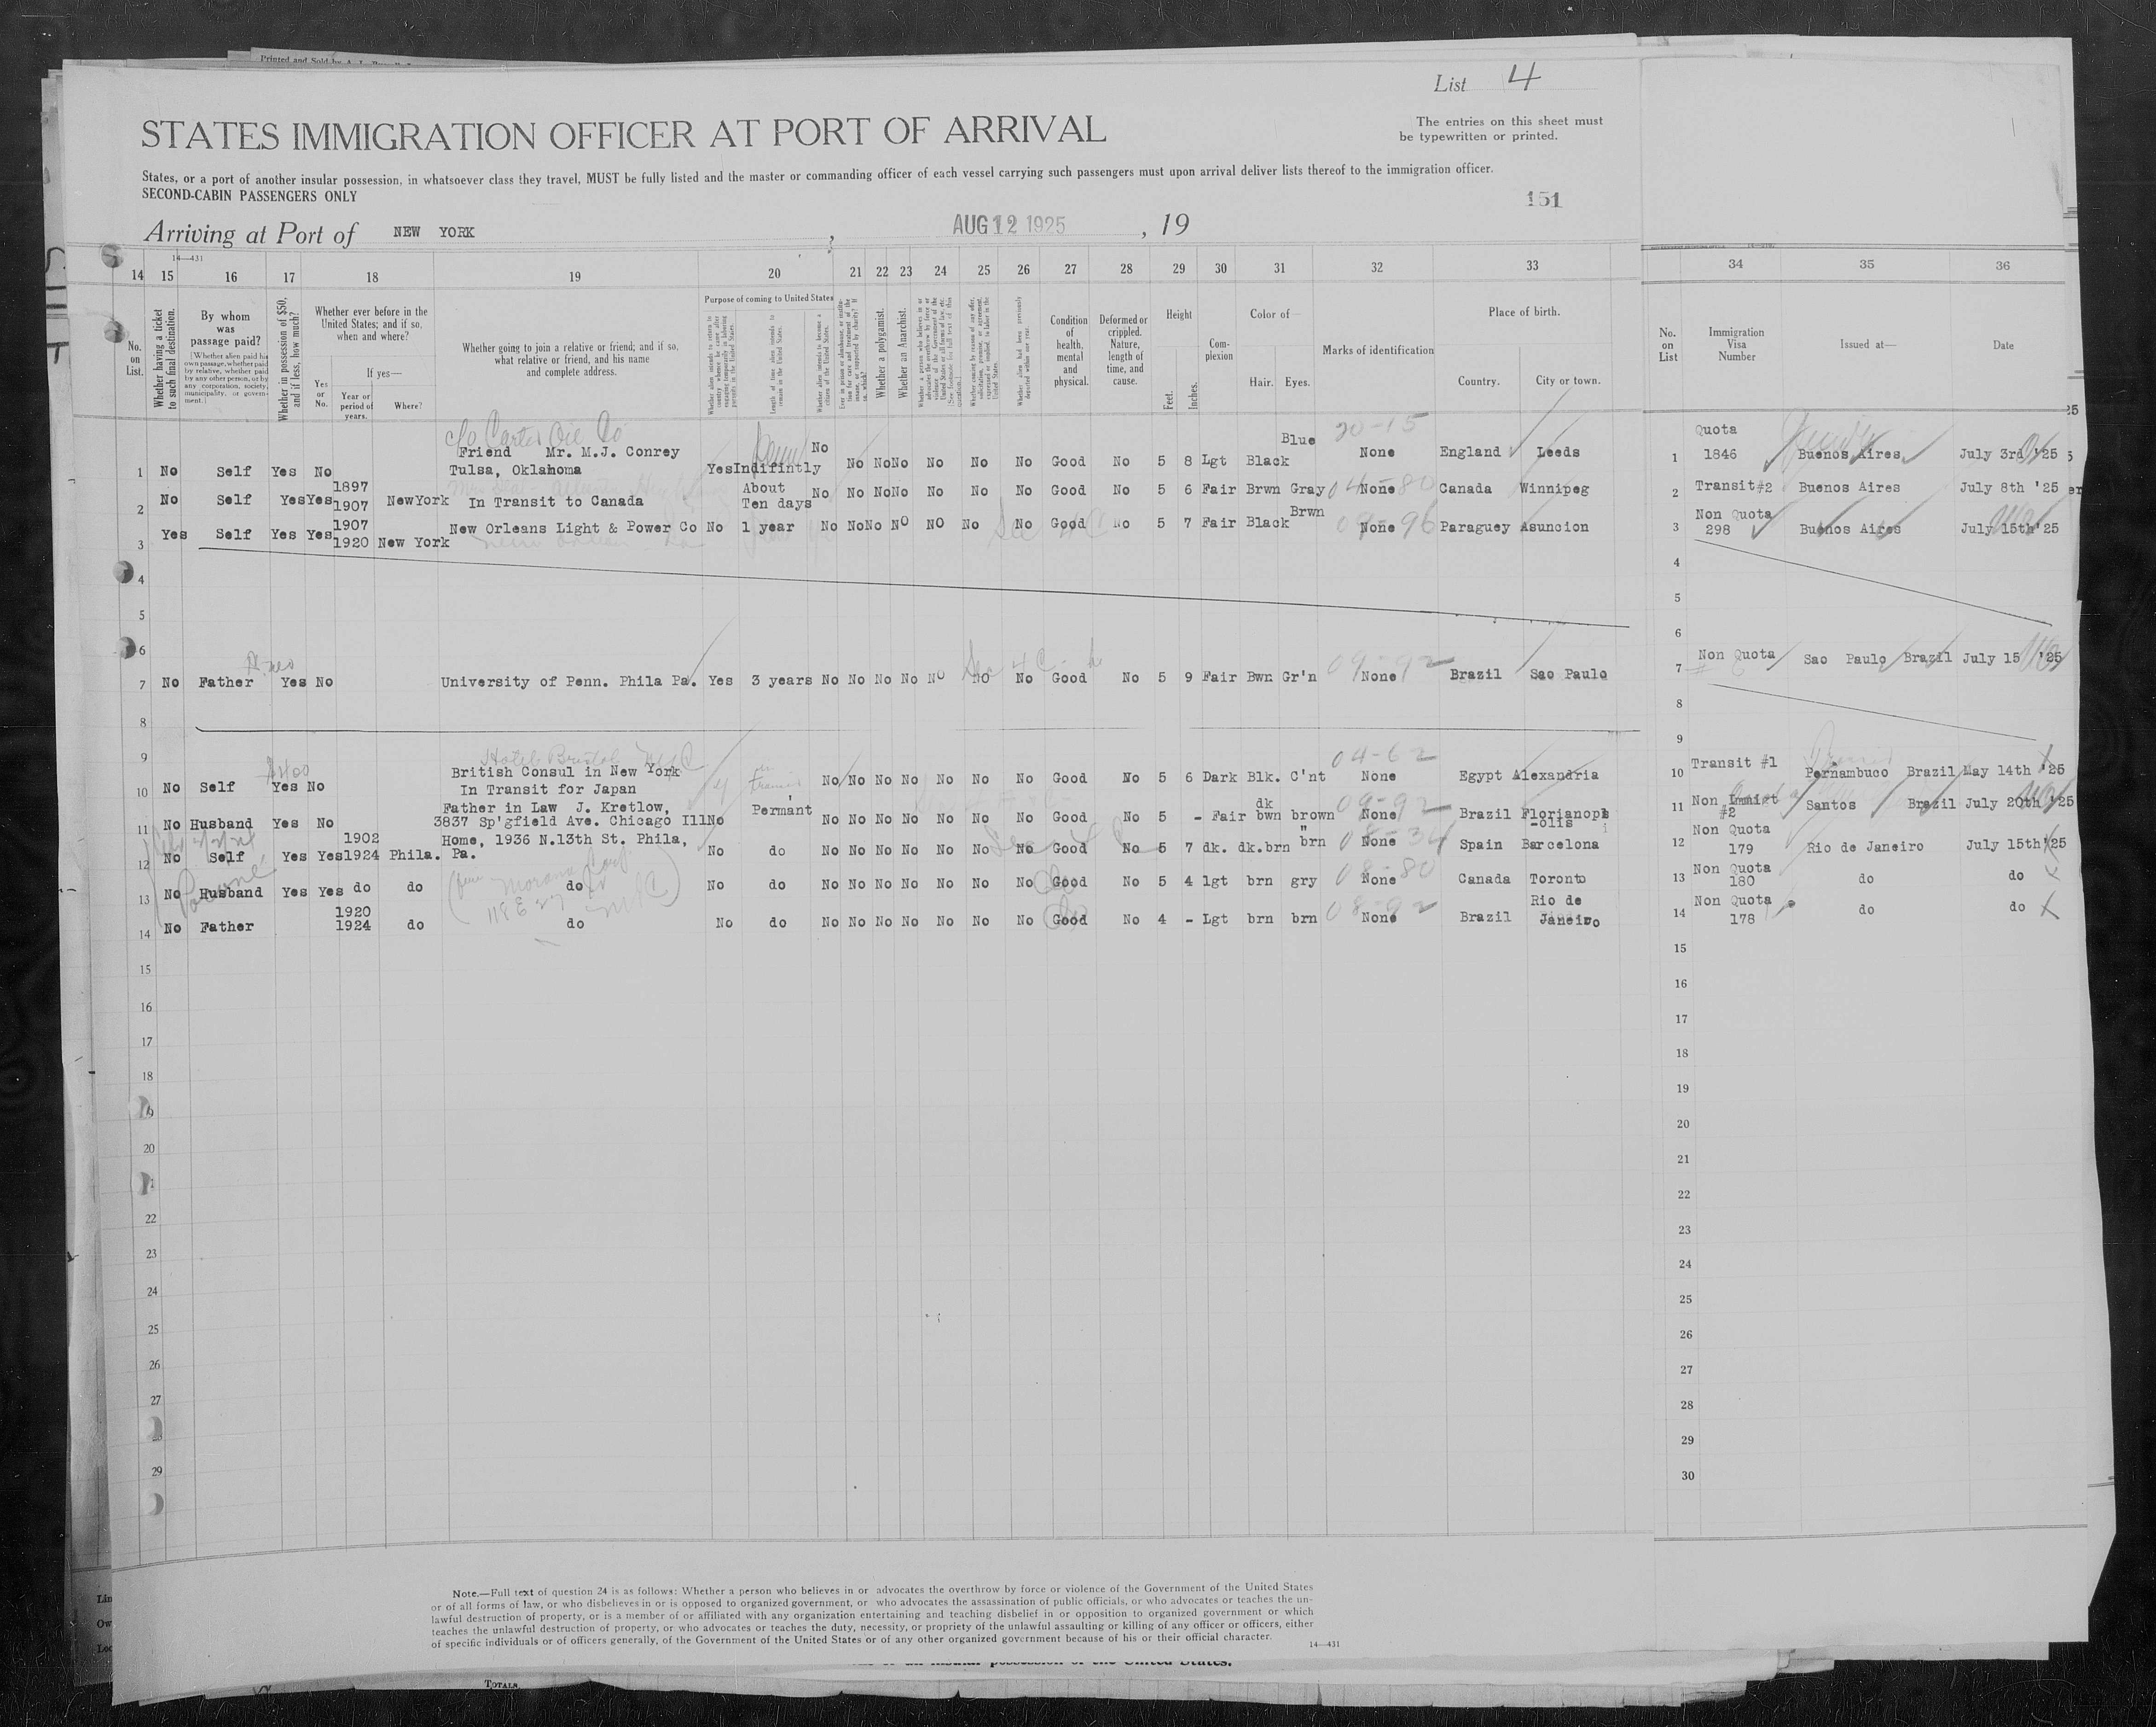 Printed and Sold by
List 4
STATES IMMIGRATION OFFICER AT PORT OF ARRIVAL
The entries on this sheet must
be typewritten or printed.
States, or a port of another insular possession, in whatsoever class they travel, MUST be fully listed and the master or commanding officer of each vessel carrying such passengers must upon arrival deliver lists thereof to the immigration officer.
SECOND-CABIN PASSENGERS ONLY
151
Arriving at Port of NEW YORK, AUG 12 1925, 19
14—431
14 15 16 17 18 19 20 21 22 23 24 25 26 27 28 29 30 31 32 33 34 35 36
No. on List.
Whether having a ticket to such final destination.
By whom was passage paid?
[Whether alien paid his own passage, whether paid by relative, whether paid by any other person, or by any corporation, society, municipality, or government.]
Whether in possession of $50, and if less, how much?
Whether ever before in the United States; and if so, when and where?
Yes or No.
If yes—
Year or period of years.
Where?
Whether going to join a relative or friend; and if so, what relative or friend, and his name and complete address.
Purpose of coming to United States
Whether alien intends to return to country whence he came after engaging temporarily in laboring pursuits in the United States.
Length of time alien intends to remain in the United States.
Whether alien intends to become a citizen of the United States.
Whether a polygamist.
Whether an Anarchist.
Whether alien had been previously deported within one year.
Condition of health, mental and physical.
Deformed or crippled. Nature, length of time, and cause.
Height
Feet. Inches.
Complexion
Color of—
Hair. Eyes.
Marks of identification
Place of birth.
Country. City or town.
No. on List
Immigration Visa Number
Issued at—
Date
c/o Carter Oil Co
Friend Mr. M.J. Conrey No Blue 20-15 Quota
1 No Self Yes No Tulsa, Oklahoma Yes Indifintly No No No No No No Good No 5 8 Lgt Black None England Leeds 1 1846 Buenos Aires July 3rd '25
1897 About
2 No Self Yes Yes 1907 New York In Transit to Canada Ten days No No No No No No No Good No 5 6 Fair Brwn Gray 04-80 None Canada Winnipeg 2 Transit #2 Buenos Aires July 8th '25
1907 Brwn Non Quota
3 Yes Self Yes Yes 1920 New York New Orleans Light & Power Co No 1 year No No No No NO No No Good No 5 7 Fair Black 09-96 None Paraguey Asuncion 3 298 Buenos Aires July 15th '25
4 4
5 5
6 6
Sec 4 C 09-92
7 No Father Yes No University of Penn. Phila Pa. Yes 3 years No No No No NO NO No Good No 5 9 Fair Bwn Gr'n None Brazil Sao Paulo 7 Non Quota Sao Paulo Brazil July 15 '25
8 8
9 9
Hotel Bristol NYC 04-62
$400 British Consul in New York
10 No Self Yes No In Transit for Japan No No No No No No No Good No 5 6 Dark Blk. C'nt None Egypt Alexandria 10 Transit #1 Pernambuco Brazil May 14th '25
Father in Law J. Kretlow, Permant dk 09-92
11 No Husband Yes No 3837 Sp'gfield Ave. Chicago Ill No No No No No No No No Good No 5 - Fair bwn brown None Brazil Florianop -olis 11 Non #2 Santos Brazil July 20th '25
1902 Home, 1936 N.13th St. Phila, " 08-34 Non Quota
12 No Self Yes Yes 1924 Phila. Pa. No do No No No No No No No Good No 5 7 dk. dk.brn brn None Spain Barcelona 12 179 Rio de Janeiro July 15th '25
13 No Husband Yes Yes do do do No do No No No No No No No Good No 5 4 lgt brn gry 08-80 None Canada Toronto 13 Non Quota 180 do do
1920 Rio de
14 No Father 1924 do do No do No No No No No No No Good No 4 - Lgt brn brn 08-92 None Brazil Janeiro 14 Non Quota 178 do do
15 15
16 16
17 17
18 18
19 19
20 20
21 21
22 22
23 23
24 24
25 25
26 26
27 27
28 28
29 29
30
Note.—Full text of question 24 is as follows: Whether a person who believes in or advocates the overthrow by force or violence of the Government of the United States
or of all forms of law, or who disbelieves in or is opposed to organized government, or who advocates the assassination of public officials, or who advocates or teaches the un-
lawful destruction of property, or is a member of or affiliated with any organization entertaining and teaching disbelief in or opposition to organized government or which
teaches the unlawful destruction of property, or who advocates or teaches the duty, necessity, or propriety of the unlawful assaulting or killing of any officer or officers, either
of specific individuals or of officers generally, of the Government of the United States or of any other organized government because of his or their official character.
14—431
TOTALS